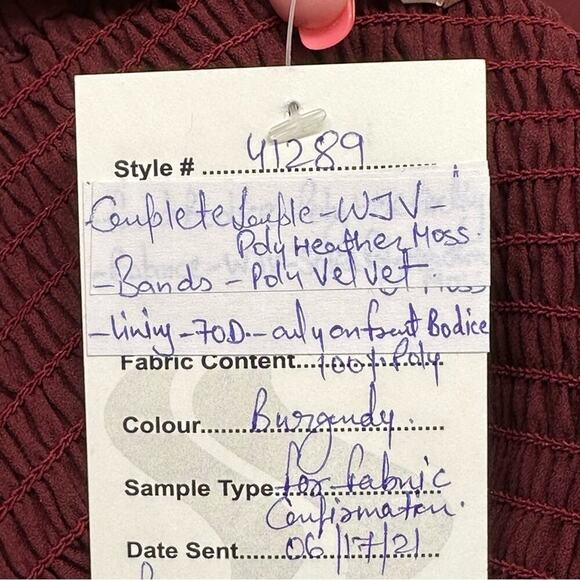 Style # ........ 41289
Complete Sample - WJV -
Poly Heather Moss.
- Bands - Poly Velvet.
Moss
- Lining - 70D. - only on front Bodice
Fabric Content... 100% Poly
Colour...... Burgundy.
Sample Type. for fabric
Confirmation.
Date Sent...... 06/17/21